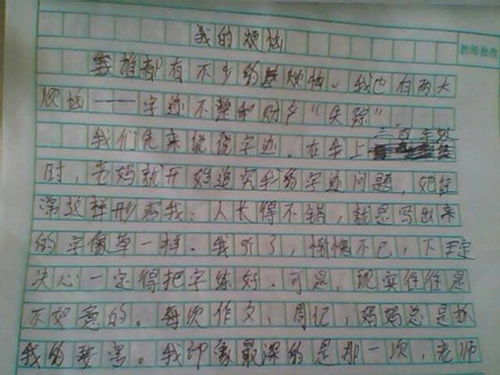 我的烦恼
谁都有不少的烦恼。我也有两大
烦恼——字迹不整和财产“失踪”
我们先来说说字迹。在我上三年级
时，老妈就开始追究我的字迹问题，她经
常这样形容我：人长得不错，就是写出来
的字像草一样。我听了，惭愧不已，下定
决心一定得把字练好。可是，现实往往是
不如意的。每次作文，周记，妈妈总是
我的。我印象最深的是那一次，老师